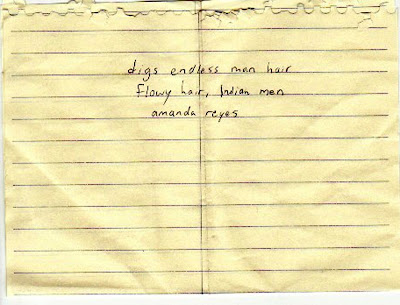 digs endless man hair
flowy hair, Indian men
amanda reyes